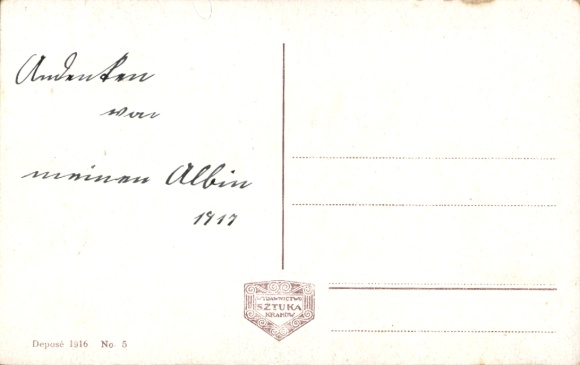 Andenken
von
meinen Albin
1917
WYDAWNICTWO
SZTUKA
KRAKÓW
Deposé 1916 No. 5